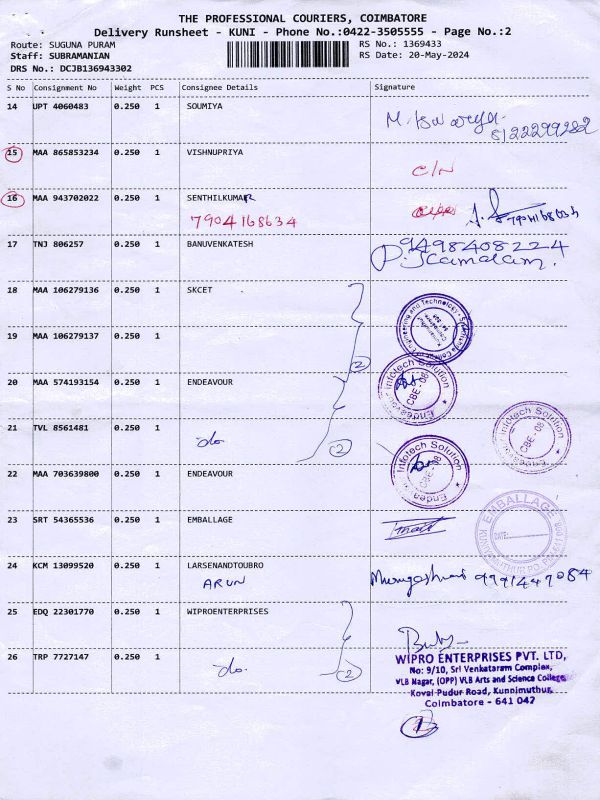 THE PROFESSIONAL COURIERS, COIMBATORE
Delivery Runsheet - KUNI - Phone No.:0422-3505555 - Page No.:2
Route: SUGUNA PURAM
RS No.: 1369433
Staff: SUBRAMANIAN
RS Date: 20-May-2024
DRS No.: DCJB136943302
S No Consignment No Weight PCS Consignee Details Signature
14 UPT 4060483 0.250 1 SOUMIYA
15 MAA 865853234 0.250 1 VISHNUPRIYA
C/N
16 MAA 943702022 0.250 1 SENTHILKUMAR
7904168634
17 TNJ 806257 0.250 1 BANUVENKATESH 9498408224
P. Kamalam.
18 MAA 106279136 0.250 1 SKCET
19 MAA 106279137 0.250 1
2
20 MAA 574193154 0.250 1 ENDEAVOUR
Endeavour Infotech Solution
CBE - 08
21 TVL 8561481 0.250 1
do
2
Endeavour Infotech Solution
CBE - 08
22 MAA 703639800 0.250 1 ENDEAVOUR
Endeavour Infotech Solution
CBE - 08
23 SRT 54365536 0.250 1 EMBALLAGE
EMBALLAGE
DATE:
24 KCM 13099520 0.250 1 LARSENANDTOUBRO
ARUN
25 EDQ 22301770 0.250 1 WIPROENTERPRISES
26 TRP 7727147 0.250 1
do.
2
WIPRO ENTERPRISES PVT. LTD,
No: 9/10, Sri Venkataram Complex,
VLB Nagar, (OPP) VLB Arts and Science College
Kovai Pudur Road, Kunnimuthur,
Coimbatore - 641 042